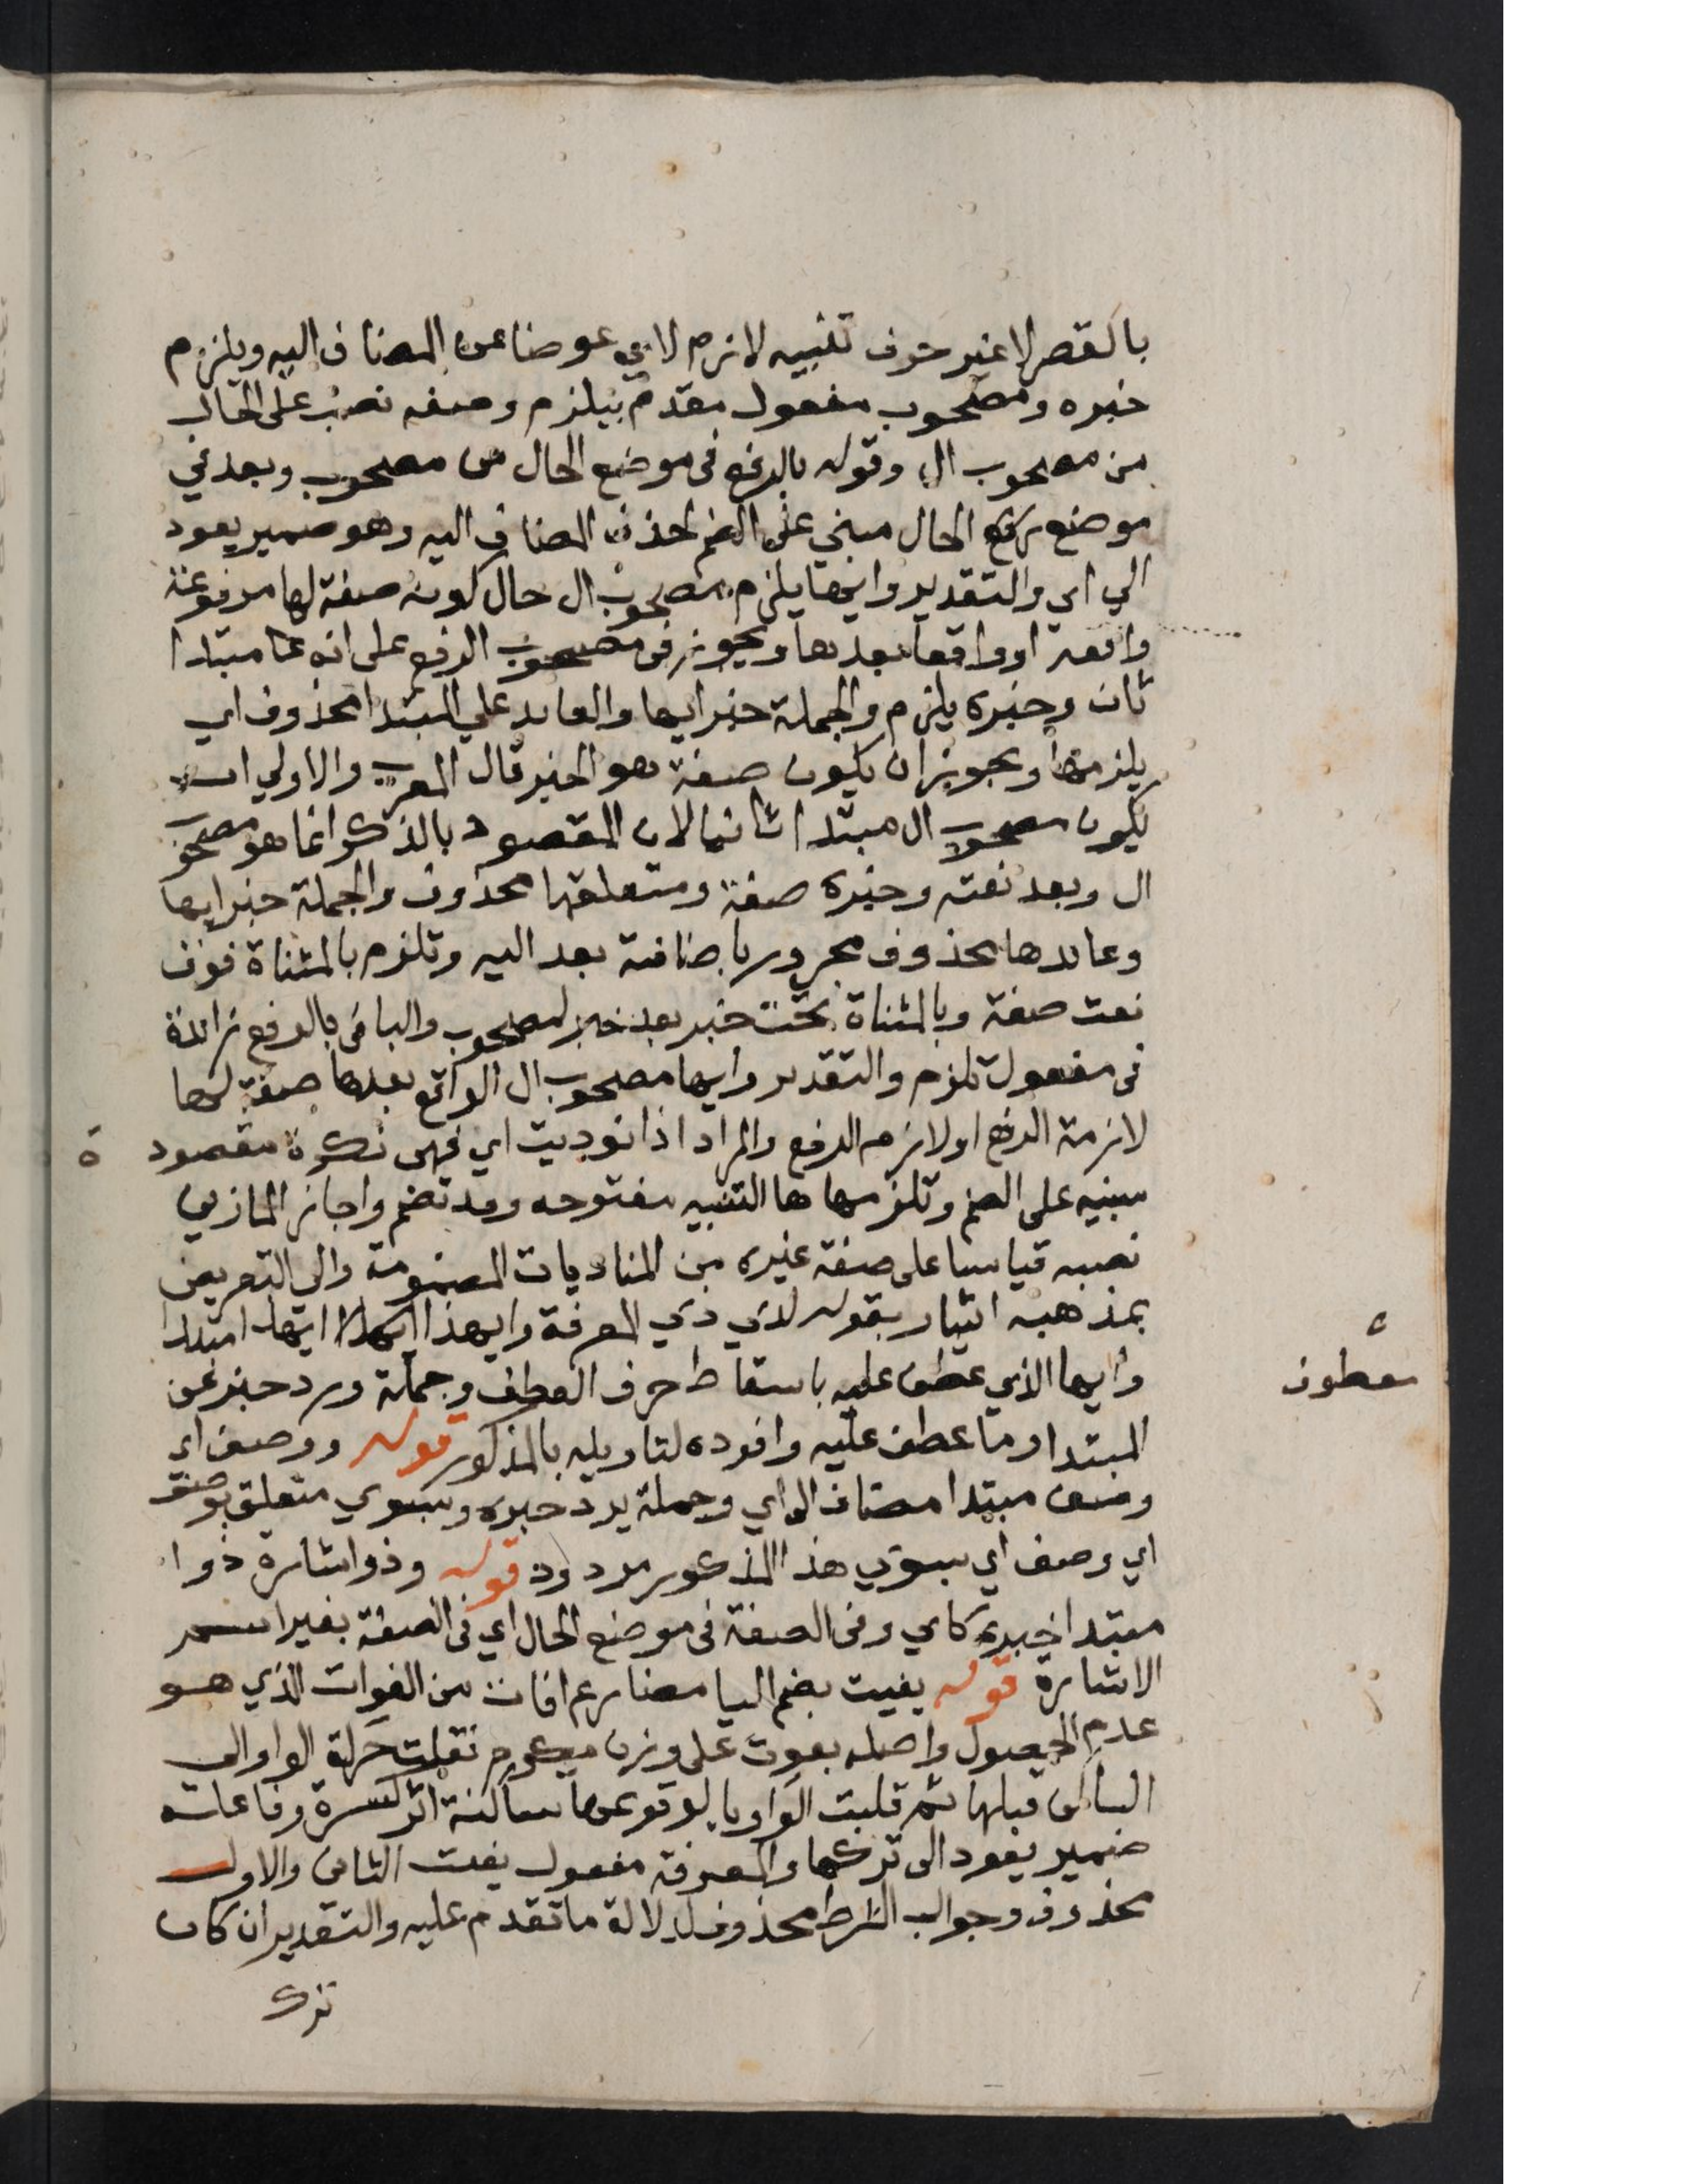 بالقصر لا غير حرف تنبيه لازم لاي عوضا عن المضاف اليه ويلزم
خبره ومصحوب مفعول مقدم بيلزم وصفه نصب على الحال
من مصحوب ال وقوله بالرفع في موضع الحال من مصحوب وبعد في
موضع رفع الحال مبني على الضم لحذف المضاف اليه وهو ضمير يعود
الي اي والتقدير وايها يلزم مصحوب ال حال كونه صفة لها مرفوعة
واقعة او واقعا بعدها ويجوز في مصحوب الرفع على انه مبتدا
ثان وخبره يلزم والجملة خبر ايها والعايد علي المبتدا محذوف اي
يلزمها ويجوز ان يكون صفة هو الخبر قال المعرب والاولي ان
يكون مصحوب ال مبتدا ثانيا لان المقصود بالذكر انما هو مصحوب
ال وبعد نعته وخبره صفة ومتعلقها محذوف والجملة خبر ايها
وعايدها محذوف مجرور باضافة بعد اليه وتلزم بالمثناة فوق
نعت صفة وبالمثناة تحت خبر بعد خبر لمصحوب والبا في بالرفع زائدة
في مفعول تلزم والتقدير وايها مصحوب ال الواقع بعدها صفة لها
لازمة الرفع او لازم الرفع والمراد اذا نوديت اي فهي نكرة مقصودة
مبنيه على الضم وتلزمها ها التنبيه مفتوحه وقد تضم واجاز المازني
نصبه قياسا على صفة غيره من المناديات المضمومة والى التعريض
بمذهبه اشار بقوله لدي ذي المعرفة وايهذا ايها ابتدا
وايها الذي عطف عليه باسقاط حرف العطف وجملة ورد خبر عن
معطوف
المبتدا وما عطف عليه وافرده لتاويله بالمذكور قوله ووصف اي
وصف مبتدا مضاف الي اي وجملة يرد خبره وبسوي متعلق بوصف
اي وصف اي بسوي هذا المذكور مردود قوله وذو اشارة ذو ا
مبتدا خبره كاي وفي الصفة في موضع الحال اي في الصفة بغير اسم
الاشارة قوله يفيت بضم اليا مضارع افات من الفوات الذي هو
عدم الحصول واصله يفوت على وزن يكرم نقلت حركة الواو الى
الساكن قبلها ثم قلبت الواو يا لوقوعها ساكنة اثر كسرة وفاعله
ضمير يعود الى تركها والمعرفة مفعول يفت الثاني والاول
محذوف وجواب الشرط محذوف لدلالة ما تقدم عليه والتقدير ان كان
ترك